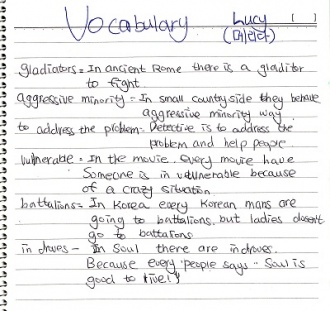 Vocabulary Lucy [ ]
gladiators = In ancient Rome there is a gladitor
to fight.
aggressive minority = In small country side they behave
aggressive minority way
to address the problem = Detective is to address the
problem and help people
vulnerable = In the movie. every movie have
Someone is in vulnerable because
of a crazy situation
battalions = In Korea every Korean mans are
going to battalions. but ladies doesn't
go to battalions
in droves - In Soul there are in droves.
Because every people says " Soul is
good to live!"